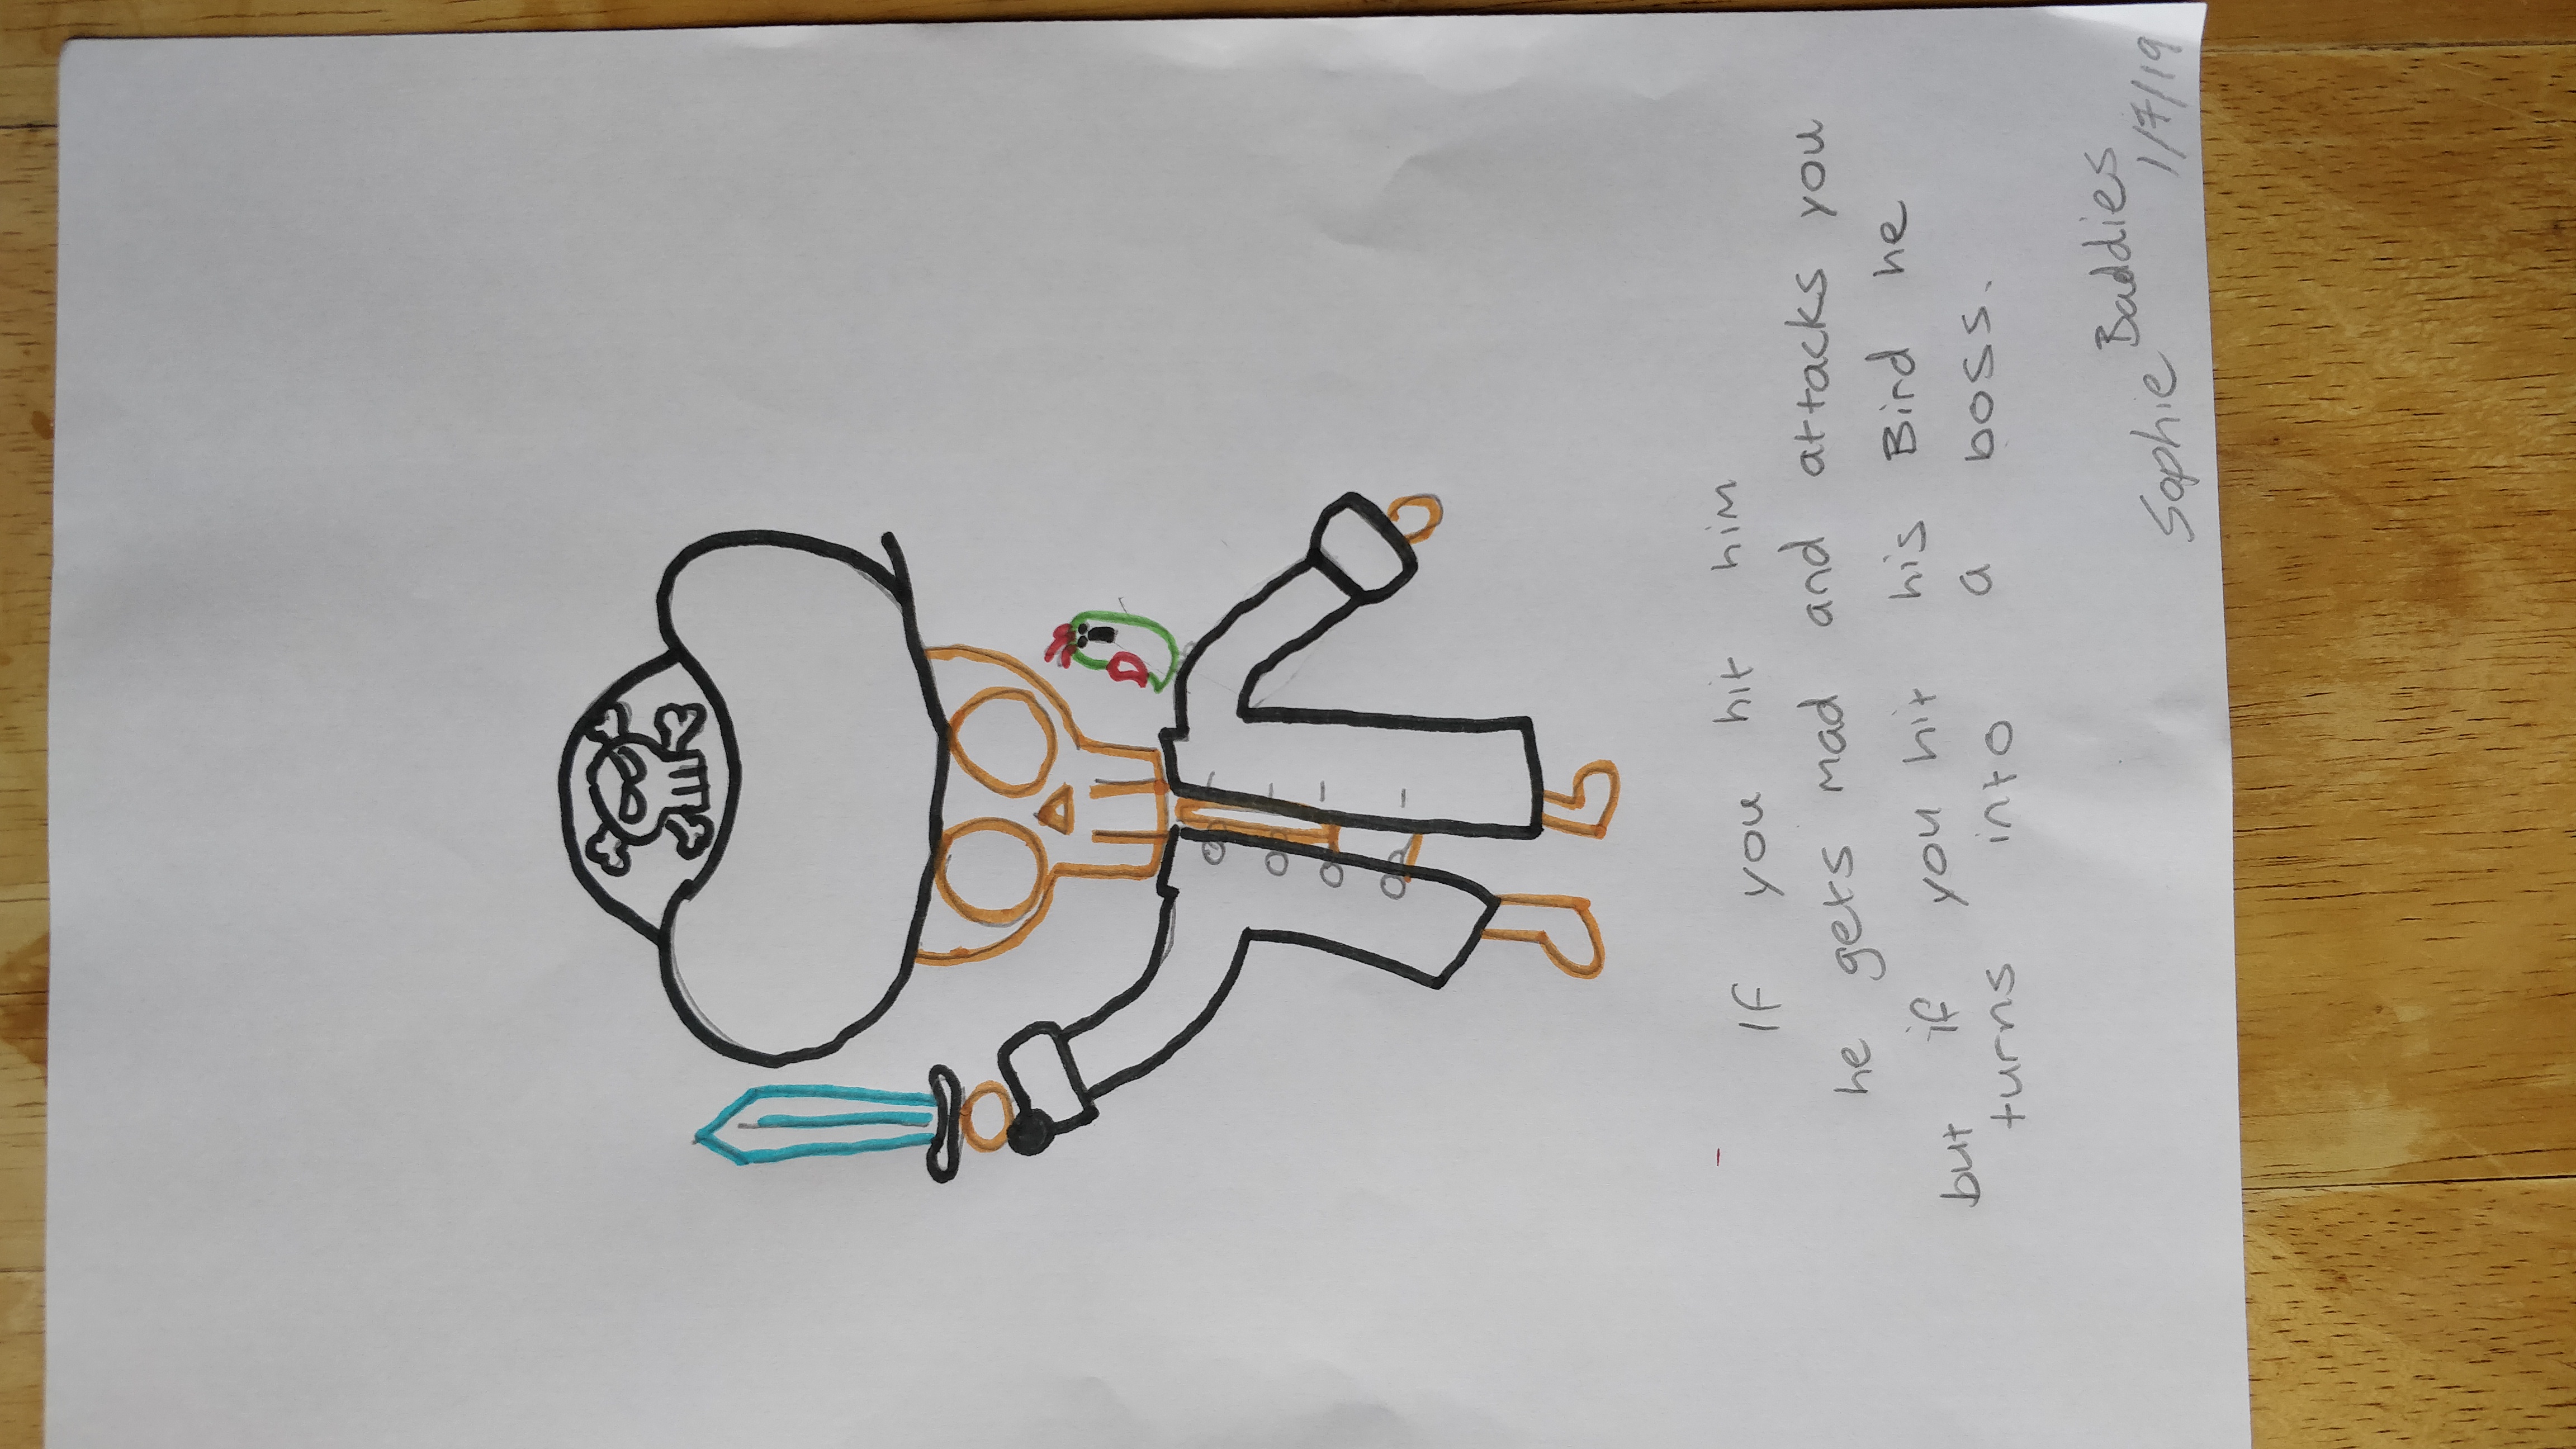 If you hit him
he gets mad and attacks you
but if you hit his Bird he
turns into a boss.
Baddies
Sophie 1/7/19